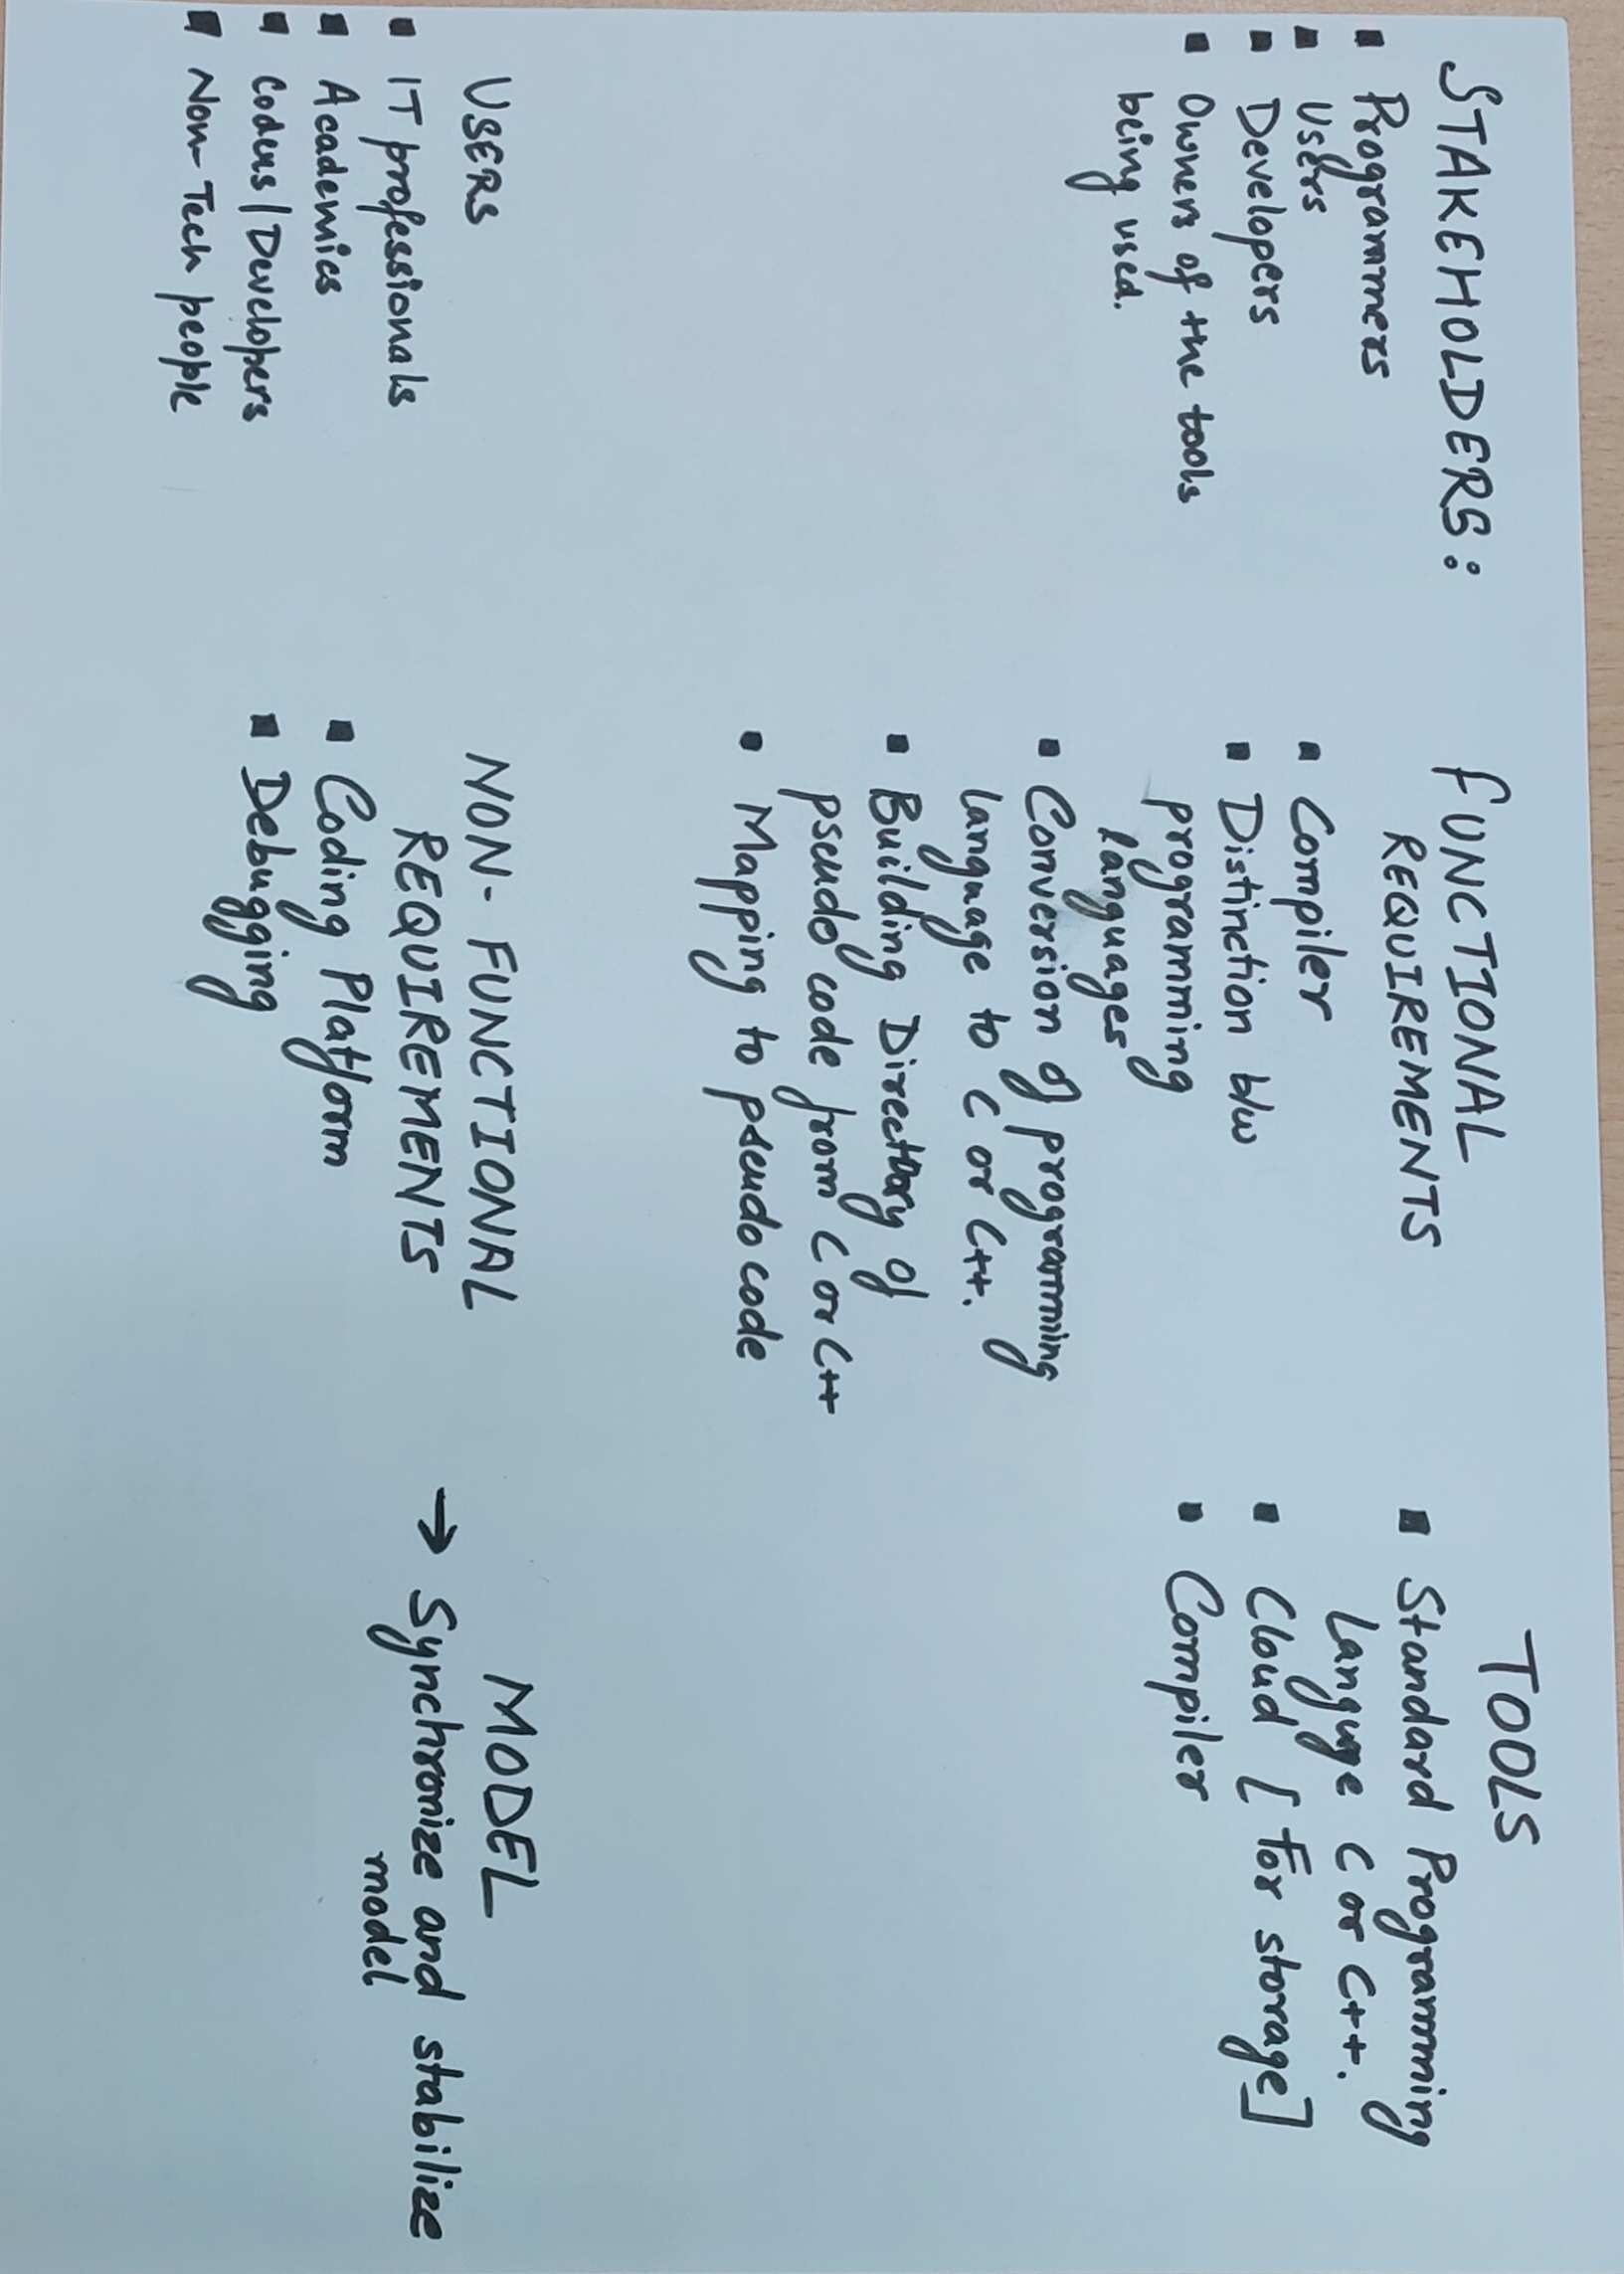 STAKEHOLDERS:
▪ Programmers
▪ Users
▪ Developers
▪ Owners of the tools
being used.
USERS
▪ IT professionals
▪ Academics
▪ Coders/Developers
▪ Non-Tech people
FUNCTIONAL
REQUIREMENTS
▪ Compiler
▪ Distinction b/w
programming
languages
▪ Conversion of programming
language to C or C++.
▪ Building Directory of
pseudo code from C or C++
▪ Mapping to pseudo code
NON-FUNCTIONAL
REQUIREMENTS
▪ Coding Platform
▪ Debugging
TOOLS
▪ Standard Programming
Languge C or C++.
▪ Cloud [For storage]
▪ Compiler
MODEL
→ Synchronize and stabilize
model